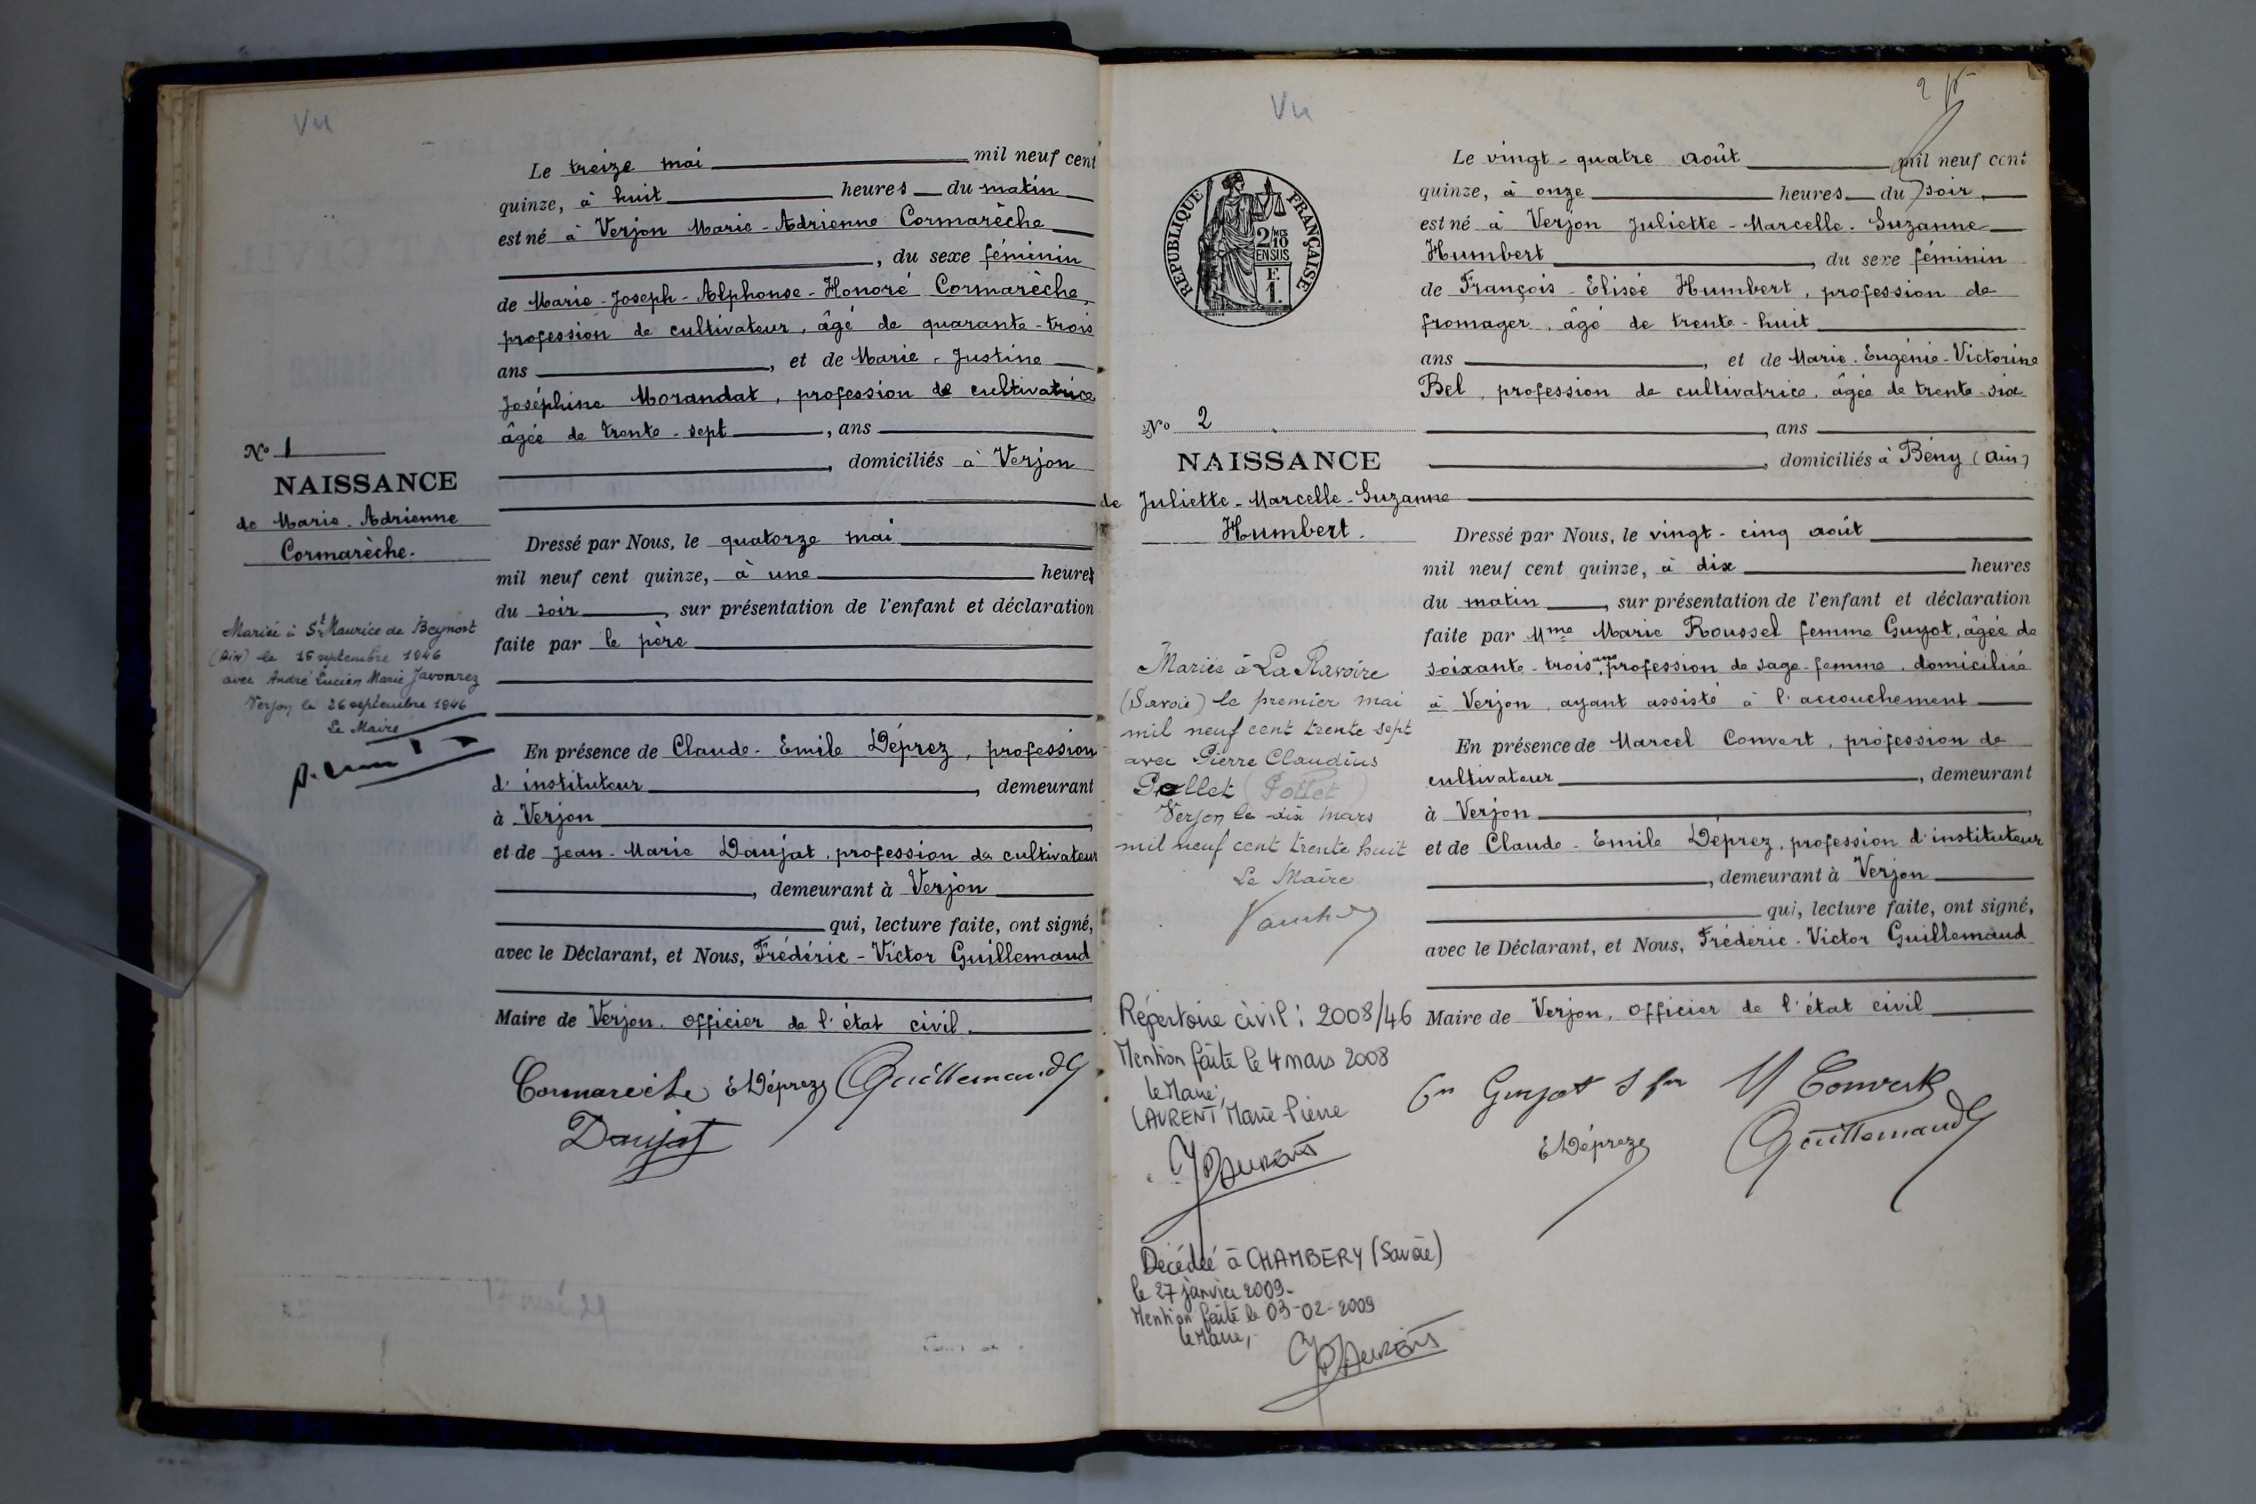 Vu
Le treize mai mil neuf cent
quinze, à huit heures du matin
est né à Verjon Marie-Adrienne Cormarèche
, du sexe féminin
de Marie-Joseph-Alphonse-Honoré Cormarèche,
profession de cultivateur, âgé de quarante-trois
ans , et de Marie-Justine
Joséphine Morandat, profession de cultivatrice
âgée de trente-sept , ans
, domiciliés à Verjon
No 1
NAISSANCE
de Marie-Adrienne
Cormarèche.
Mariée à St Maurice de Beynost
(Ain) le septembre 1946
avec André Lucien Marie
Verjon le 26 septembre 1946
Le Maire
Dressé par Nous, le quatorze mai
mil neuf cent quinze, à une heures
du soir , sur présentation de l'enfant et déclaration
faite par le père
En présence de Claude-Emile Déprez, profession
d'instituteur , demeurant
à Verjon
et de Jean-Marie Daujat, profession de cultivateur
, demeurant à Verjon
qui, lecture faite, ont signé,
avec le Déclarant, et Nous, Frédéric-Victor Guillemaud
Maire de Verjon, officier de l'état civil.
Cormarèche EDéprez Guillemaud
Daujat
Vu
2
RÉPUBLIQUE FRANÇAISE
2/10
EN SUS
F.
1.
Le vingt-quatre août mil neuf cent
quinze, à onze heures du soir
est né à Verjon Juliette-Marcelle-Suzanne
Humbert , du sexe féminin
de François-Elisée Humbert, profession de
fromager, âgé de trente-huit
ans , et de Marie-Eugénie-Victorine
Bel, profession de cultivatrice, âgée de trente-six
, ans
, domiciliés à Bény (Ain)
No 2
NAISSANCE
de Juliette-Marcelle-Suzanne
Humbert.
Mariée à La Ravoire
(Savoie) le premier mai
mil neuf cent trente sept
avec Pierre Claudius
Pollet (Pollet)
Verjon le dix mars
mil neuf cent trente huit
Le Maire
Répertoire civil : 2008/46
Mention faite le 4 mars 2008
le Maire,
LAURENT Marie Pierre
Décédée à CHAMBERY (Savoie)
le 27 janvier 2009.
Mention faite le 03-02-2009
le Maire,
Dressé par Nous, le vingt-cinq août
mil neuf cent quinze, à dix heures
du matin , sur présentation de l'enfant et déclaration
faite par Mme Marie Roussel femme Guyot, âgée de
soixante-trois ans, profession de sage-femme, domiciliée
à Verjon, ayant assisté à l'accouchement
En présence de Marcel Convert, profession de
cultivateur , demeurant
à Verjon ,
et de Claude-Emile Déprez, profession d'instituteur
, demeurant à Verjon
qui, lecture faite, ont signé,
avec le Déclarant, et Nous, Frédéric-Victor Guillemaud
Maire de Verjon, officier de l'état civil
Guyot M Convert
EDéprez Guillemaud